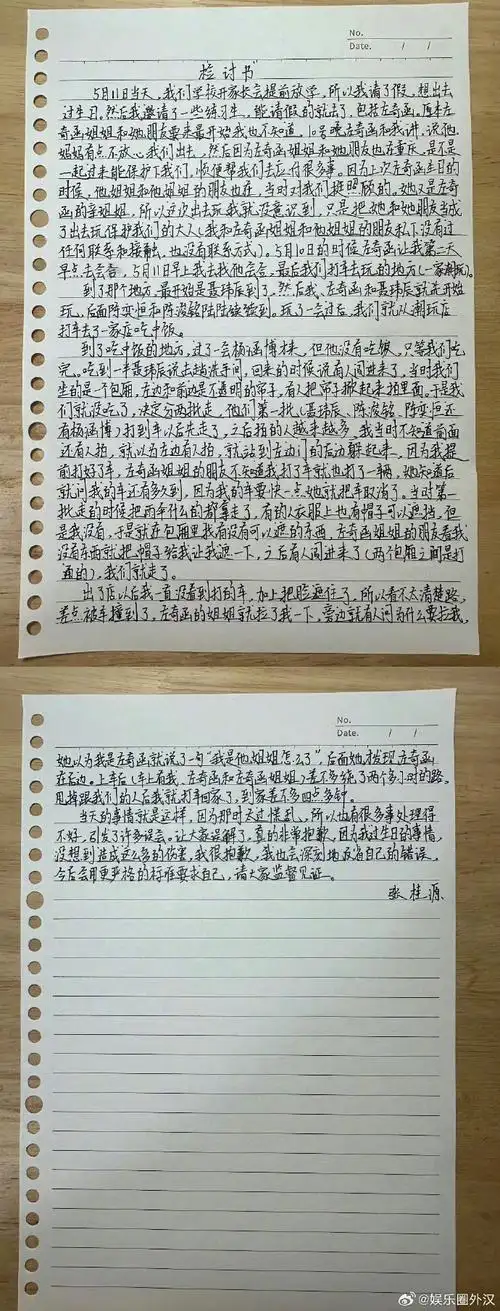 No.
Date. / /
检讨书
5月11日当天，我们学校开家长会提前放学，所以我请了假，想出去
过生日。然后我邀请了一些练习生，能请假的就去了，包括左奇函。原本左
奇函姐姐和她朋友要来最开始我也不知道，10号晚左奇函和我讲，说他
妈妈有点不放心我们出去，然后因为左奇函姐姐和她朋友也在重庆，是不是
一起过来能保护下我们，顺便帮我们去应付很多事。因为上次左奇函生日的
时候，他姐姐和他姐姐的朋友也在，当时对我们挺照顾的。她又是左奇
函的亲姐姐，所以这次出去玩我就没意识到，只是把她和她朋友当成
了出去玩保护我们的大人（我和左奇函姐姐和他姐姐的朋友私下没有过
任何联系和接触，也没有联系方式）。5月10日的时候左奇函让我第二天
早点去会合，5月11日早上我去找他会合，最后我们打车去玩的地方（一家潮玩）。
到了那个地方，最开始是聂玮辰到了，然后我、左奇函和聂玮辰就先开始
玩，后面陈奕恒和陈浚铭陆陆续续到。玩了一会过后，我们就从潮玩店
打车去了一家店吃中饭。
到了吃中饭的地方，过了一会杨涵博才来，但他没有吃饭，只等我们吃
完。吃到一半聂玮辰说出去趟洗手间，回来的时候说有人闯进来了，当时我们
坐的是一个包厢，左边和前边是不透明的帘子，有人把帘子掀起来拍里面。于是我
们就没吃了，决定分两批走，他们第一批（聂玮辰、陈浚铭、陈奕恒还
有杨涵博）打到车以后先走了，之后拍的人越来越多，我当时不知道前面
还有人拍，就以为左边有人拍，就站到左边门的后边躲起来，因为我提
前打好了车，左奇函姐姐的朋友不知道我打了车就也打了一辆，她知道后
就问我的车还有多久到，因为我的车要快一点，她就把车取消了。当时第一
批走的时候把雨伞什么的都拿走了，有的人衣服上也有帽子可以遮挡，但
是我没有，于是就在包厢里找有没有可以遮的东西，左奇函姐姐的朋友看我
没有东西就把帽子给我让我遮一下，之后有人闯进来了（两个包厢之间是打
通的），我们就走了。
出了店以后我一直没看到打的车，加上把脸遮住了，所以看不太清楚路，
差点被车撞到了，左奇函的姐姐就拉了我一下，旁边就有人问为什么要拉我，
No.
Date. / /
她以为我是左奇函就说了一句“我是他姐姐怎么了”，后面她才发现左奇函
在右边。上车后（车上有我、左奇函和左奇函姐姐）差不多绕了两个多小时的路，
甩掉跟我们的人后我就打车回家了，到家差不多四点多钟。
当天的事情就是这样，因为那时太过慌乱，所以也有很多事处理得
不好，引发了许多误会，让大家误解了，真的非常抱歉，因为我过生日的事情，
没想到造成这么多的伤害，我很抱歉，我也会深刻地反省自己的错误，
今后会用更严格的标准要求自己，请大家监督见证。
张桂源
@娱乐圈外汉